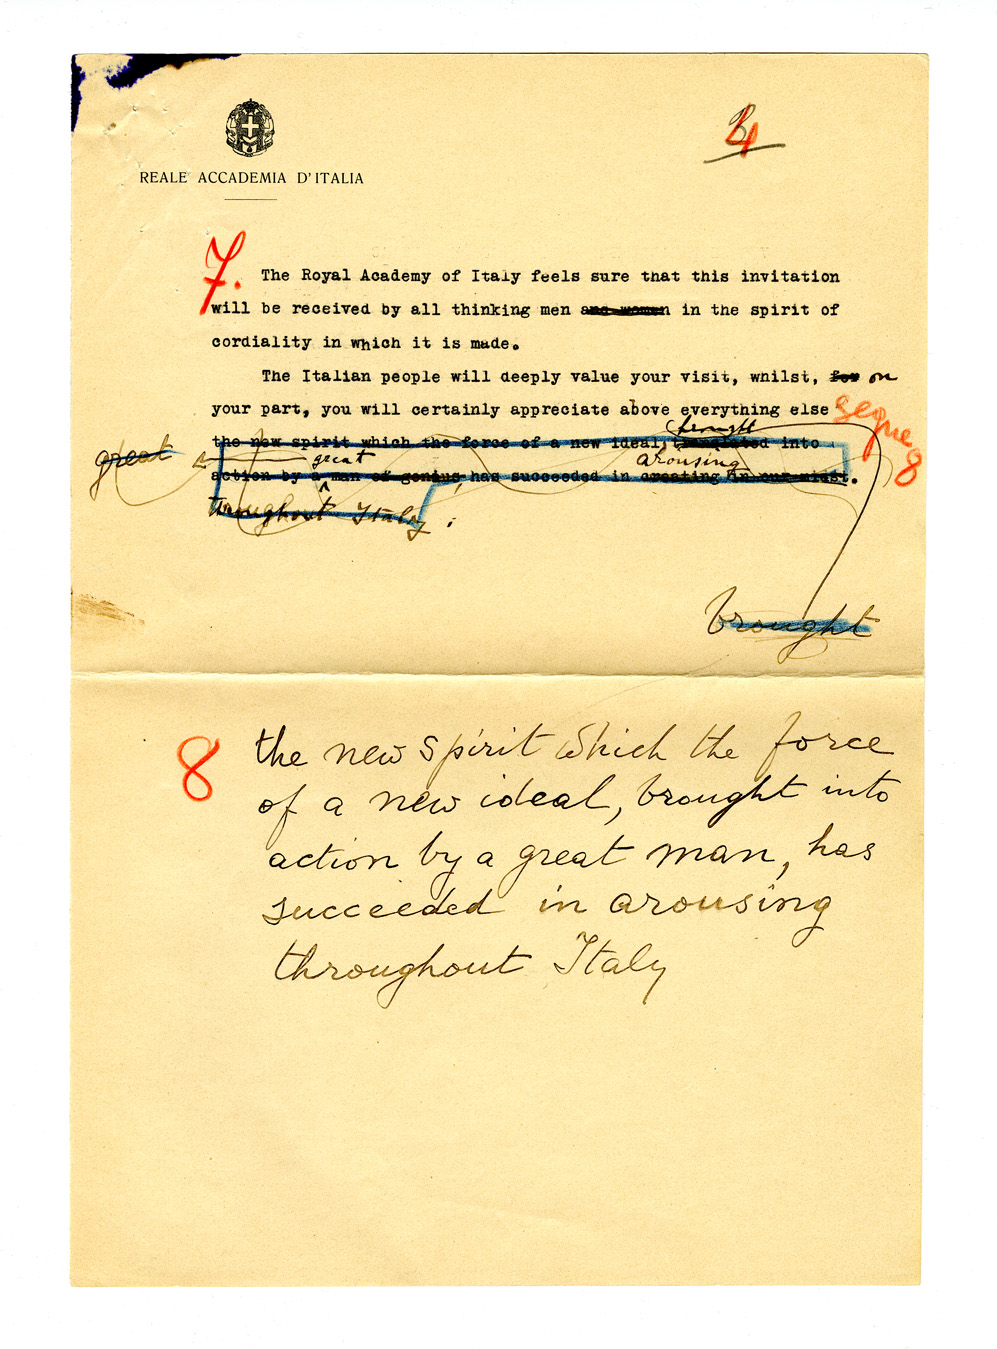 4
REALE ACCADEMIA D'ITALIA
7.
The Royal Academy of Italy feels sure that this invitation
will be received by all thinking men and women in the spirit of
cordiality in which it is made.
The Italian people will deeply value your visit, whilst, for on
your part, you will certainly appreciate above everything else segue 8
brought
the new spirit which the force of a new ideal, translated into
great great arousing
action by a man of genius, has succeeded in creating in our midst.
throughout Italy.
brought
8 the new spirit which the force
of a new ideal, brought into
action by a great man, has
succeeded in arousing
throughout Italy